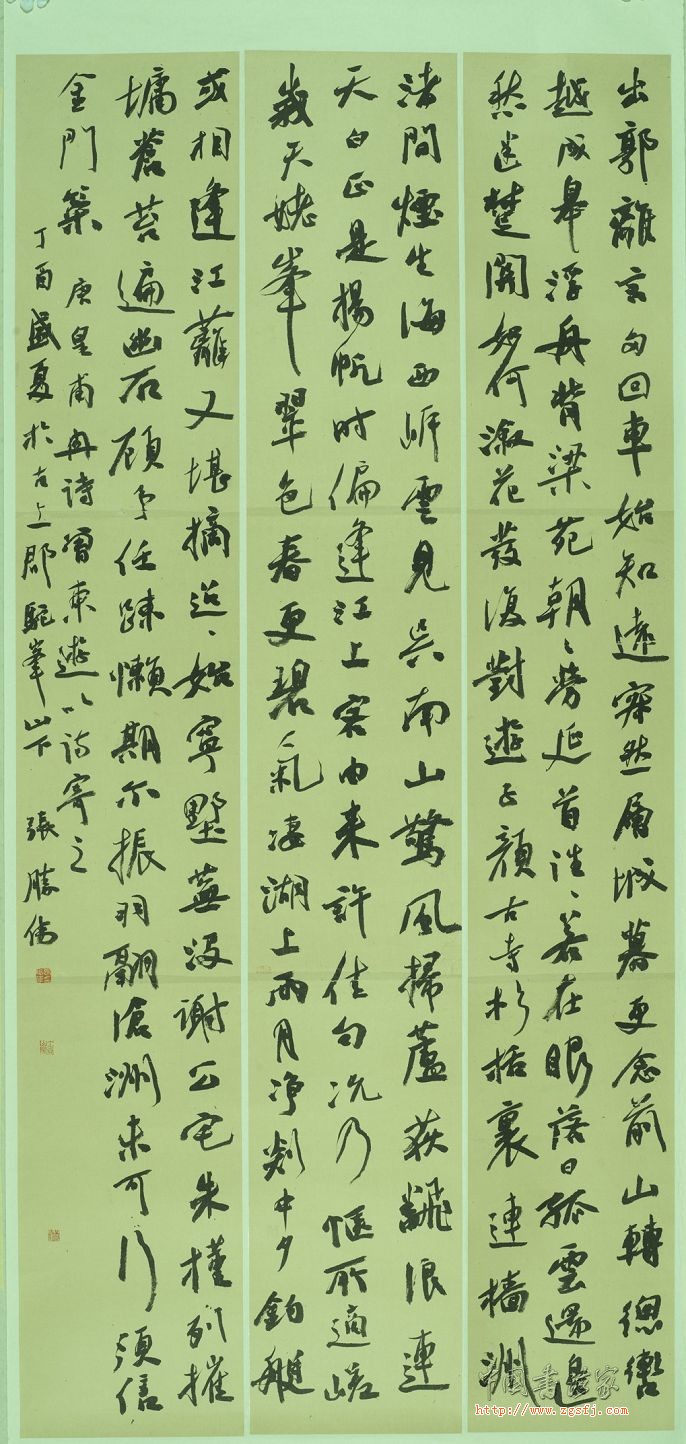 出郭離言多回車始知遠寂然層城暮更念前山轉總轡
越成皋浮舟背梁苑朝〻勞延首往〻若在眼落日孤雲還邊
愁迷楚關如何淑花發復對遊子顏古寺杉栝裏連檣洲
渚間煙生海西岸雲見吳南山驚風掃蘆荻翻浪連
天白正是楊帆時偏逢江上客由來許佳句況乃愜所適嵯
峩天姥峯翠色春更碧氣淒湖上雨月淨剡中夕釣艇
或相逢江蘺又堪摘迢〻始寧墅蕪沒謝公宅朱槿列摧
墉蒼苔遍幽石顧予任疎懶期尒振羽翮滄洲未可行須信
金門策 唐皇甫冉詩曾東遊以詩寄之
丁酉盛夏於古上郡駝峯山下 張勝偉
中國書法家
http://www.zgsfj.com